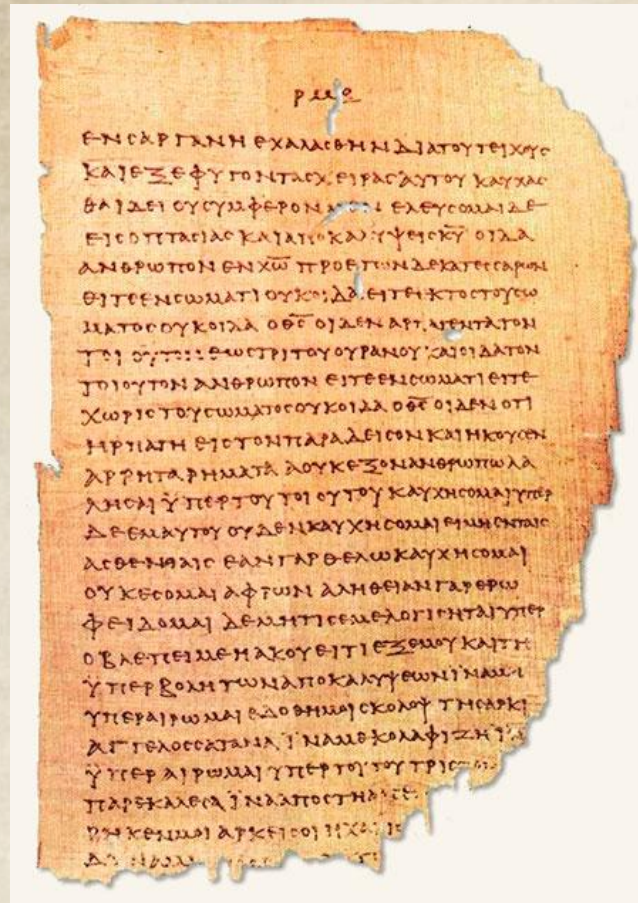 ΕΝ ϹΑΡΓΑΝΗ ΕΧΑΛΑϹΘΗΝ ΔΙΑ ΤΟΥ ΤΕΙΧΟΥϹ
ΚΑΙ ΕΞΕΦΥΓΟΝ ΤΑϹ ΧΕΙΡΑϹ ΑΥΤΟΥ ΚΑΥΧΑϹ
ΘΑΙ ΔΕΙ ΟΥ ϹΥΜΦΕΡΟΝ ΜΕΝ ΕΛΕΥϹΟΜΑΙ ΔΕ
ΕΙϹ ΟΠΤΑϹΙΑϹ ΚΑΙ ΑΠΟΚΑΛΥΨΕΙϹ Κ̅Υ̅ ΟΙΔΑ
ΑΝΘΡΩΠΟΝ ΕΝ Χ̅Ω̅ ΠΡΟ ΕΤΩΝ ΔΕΚΑΤΕϹϹΑΡΩΝ
ΕΙΤΕ ΕΝ ϹΩΜΑΤΙ ΟΥΚ ΟΙΔΑ ΕΙΤΕ ΕΚΤΟϹ ΤΟΥ ϹΩ
ΜΑΤΟϹ ΟΥΚ ΟΙΔΑ Ο Θ̅Ϲ̅ ΟΙΔΕΝ ΑΡΠΑΓΕΝΤΑ ΤΟΝ
ΤΟΙΟΥΤΟΝ ΕΩϹ ΤΡΙΤΟΥ ΟΥΡΑΝΟΥ ΚΑΙ ΟΙΔΑ ΤΟΝ
ΤΟΙΟΥΤΟΝ ΑΝΘΡΩΠΟΝ ΕΙΤΕ ΕΝ ϹΩΜΑΤΙ ΕΙΤΕ
ΧΩΡΙϹ ΤΟΥ ϹΩΜΑΤΟϹ ΟΥΚ ΟΙΔΑ Ο Θ̅Ϲ̅ ΟΙΔΕΝ ΟΤΙ
ΗΡΠΑΓΗ ΕΙϹ ΤΟΝ ΠΑΡΑΔΕΙϹΟΝ ΚΑΙ ΗΚΟΥϹΕΝ
ΑΡΡΗΤΑ ΡΗΜΑΤΑ Α ΟΥΚ ΕΞΟΝ ΑΝΘΡΩΠΩ ΛΑ
ΛΗϹΑΙ ΫΠΕΡ ΤΟΥ ΤΟΙΟΥΤΟΥ ΚΑΥΧΗϹΟΜΑΙ ΥΠΕΡ
ΔΕ ΕΜΑΥΤΟΥ ΟΥΔΕΝ ΚΑΥΧΗϹΟΜΑΙ ΕΙ ΜΗ ΕΝ ΤΑΙϹ
ΑϹΘΕΝΕΙΑΙϹ ΕΑΝ ΓΑΡ ΘΕΛΩ ΚΑΥΧΗϹΟΜΑΙ
ΟΥΚ ΕϹΟΜΑΙ ΑΦΡΩΝ ΑΛΗΘΕΙΑΝ ΓΑΡ ΕΡΩ
ΦΕΙΔΟΜΑΙ ΔΕ ΜΗ ΤΙϹ ΕΜΕ ΛΟΓΙϹΗΤΑΙ ΥΠΕΡ
Ο ΒΛΕΠΕΙ ΜΕ Η ΑΚΟΥΕΙ ΤΙ ΕΞ ΕΜΟΥ ΚΑΙ ΤΗ
ΫΠΕΡΒΟΛΗ ΤΩΝ ΑΠΟΚΑΛΥΨΕΩΝ ΪΝΑ ΜΗ
ΥΠΕΡΑΙΡΩΜΑΙ ΕΔΟΘΗ ΜΟΙ ϹΚΟΛΟΨ ΤΗ ϹΑΡΚΙ
ΑΓΓΕΛΟϹ ϹΑΤΑΝΑ ΪΝΑ ΜΕ ΚΟΛΑΦΙΖΗ ΪΝΑ
ΫΠΕΡΑΙΡΩΜΑΙ ΥΠΕΡ ΤΟΥΤΟΥ ΤΡΙϹ
ΠΑΡΕΚΑΛΕϹΑ ΪΝΑ ΑΠΟϹΤΗ
ΡΗΚΕΝ ΜΟΙ ΑΡΚΕΙ ϹΟΙ Η ΧΑΡΙϹ